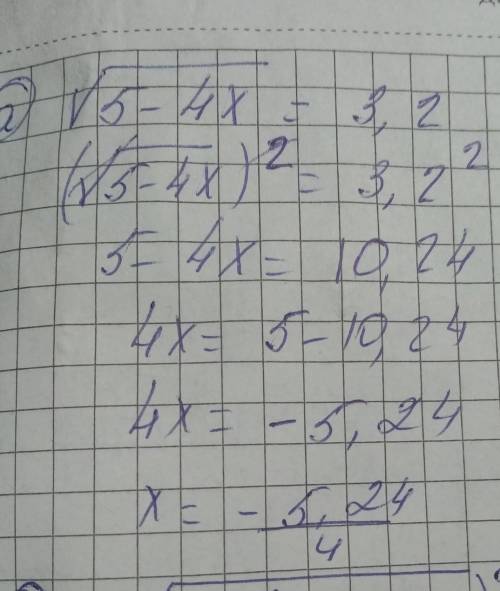 а) √5-4x = 3,2
(√5-4x)² = 3,2²
5-4x = 10,24
4x = 5-10,24
4x = -5,24
x = - 5,24/4